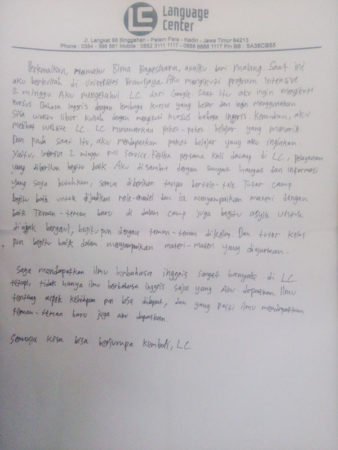 LC
Language
Center
Jl. Langkat 88 Singgahan - Pelem Pare - Kediri - Jawa Timur 64213
Phone : 0354 - 396 561 Mobile : 0852 3111 1117 - 0856 1117
Perkenalkan, namaku Bima, asalku dari Malang. Saat ini
aku berkuliah di Universitas Brawijaya. Aku mengikuti program intensive
2 minggu. Aku mengetahui LC dari Google. Saat itu, aku ingin mengikuti
kursus bahasa Inggris dengan lembaga kursus yang besar dan ingin menggunakan
waktu libur kuliah dengan mengikuti kursus bahasa Inggris. Kemudian, aku
melihat website LC. LC menawarkan paket-paket belajar yang menarik.
Dan pada saat itu, aku mendapatkan paket belajar yang aku inginkan
yaitu, intensive 2 minggu full service. Ketika pertama kali datang di LC, pelayanan
yang diberikan begitu baik. Aku disambut dengan sangat hangat dan informasi
yang saya butuhkan, semua diberikan tanpa bertele-tele. Tutor camp
begitu baik untuk dijadikan role-model dan ia menyampaikan materi dengan
baik. Teman-teman baru di dalam camp juga begitu asyik untuk
diajak bergaul, begitu pun dengan teman-teman di kelas. Dan tutor kelas
pun begitu baik dalam menyampaikan materi-materi yang diajarkan.
Saya mendapatkan ilmu berbahasa inggris sangat banyak di LC
tetapi, tidak hanya ilmu berbahasa Inggris saja yang aku dapatkan. Ilmu
tentang aspek kehidupan pun bisa didapat, dan yang pasti ilmu mendapatkan
teman-teman baru juga aku dapatkan.
Semoga kita bisa berjumpa kembali, LC